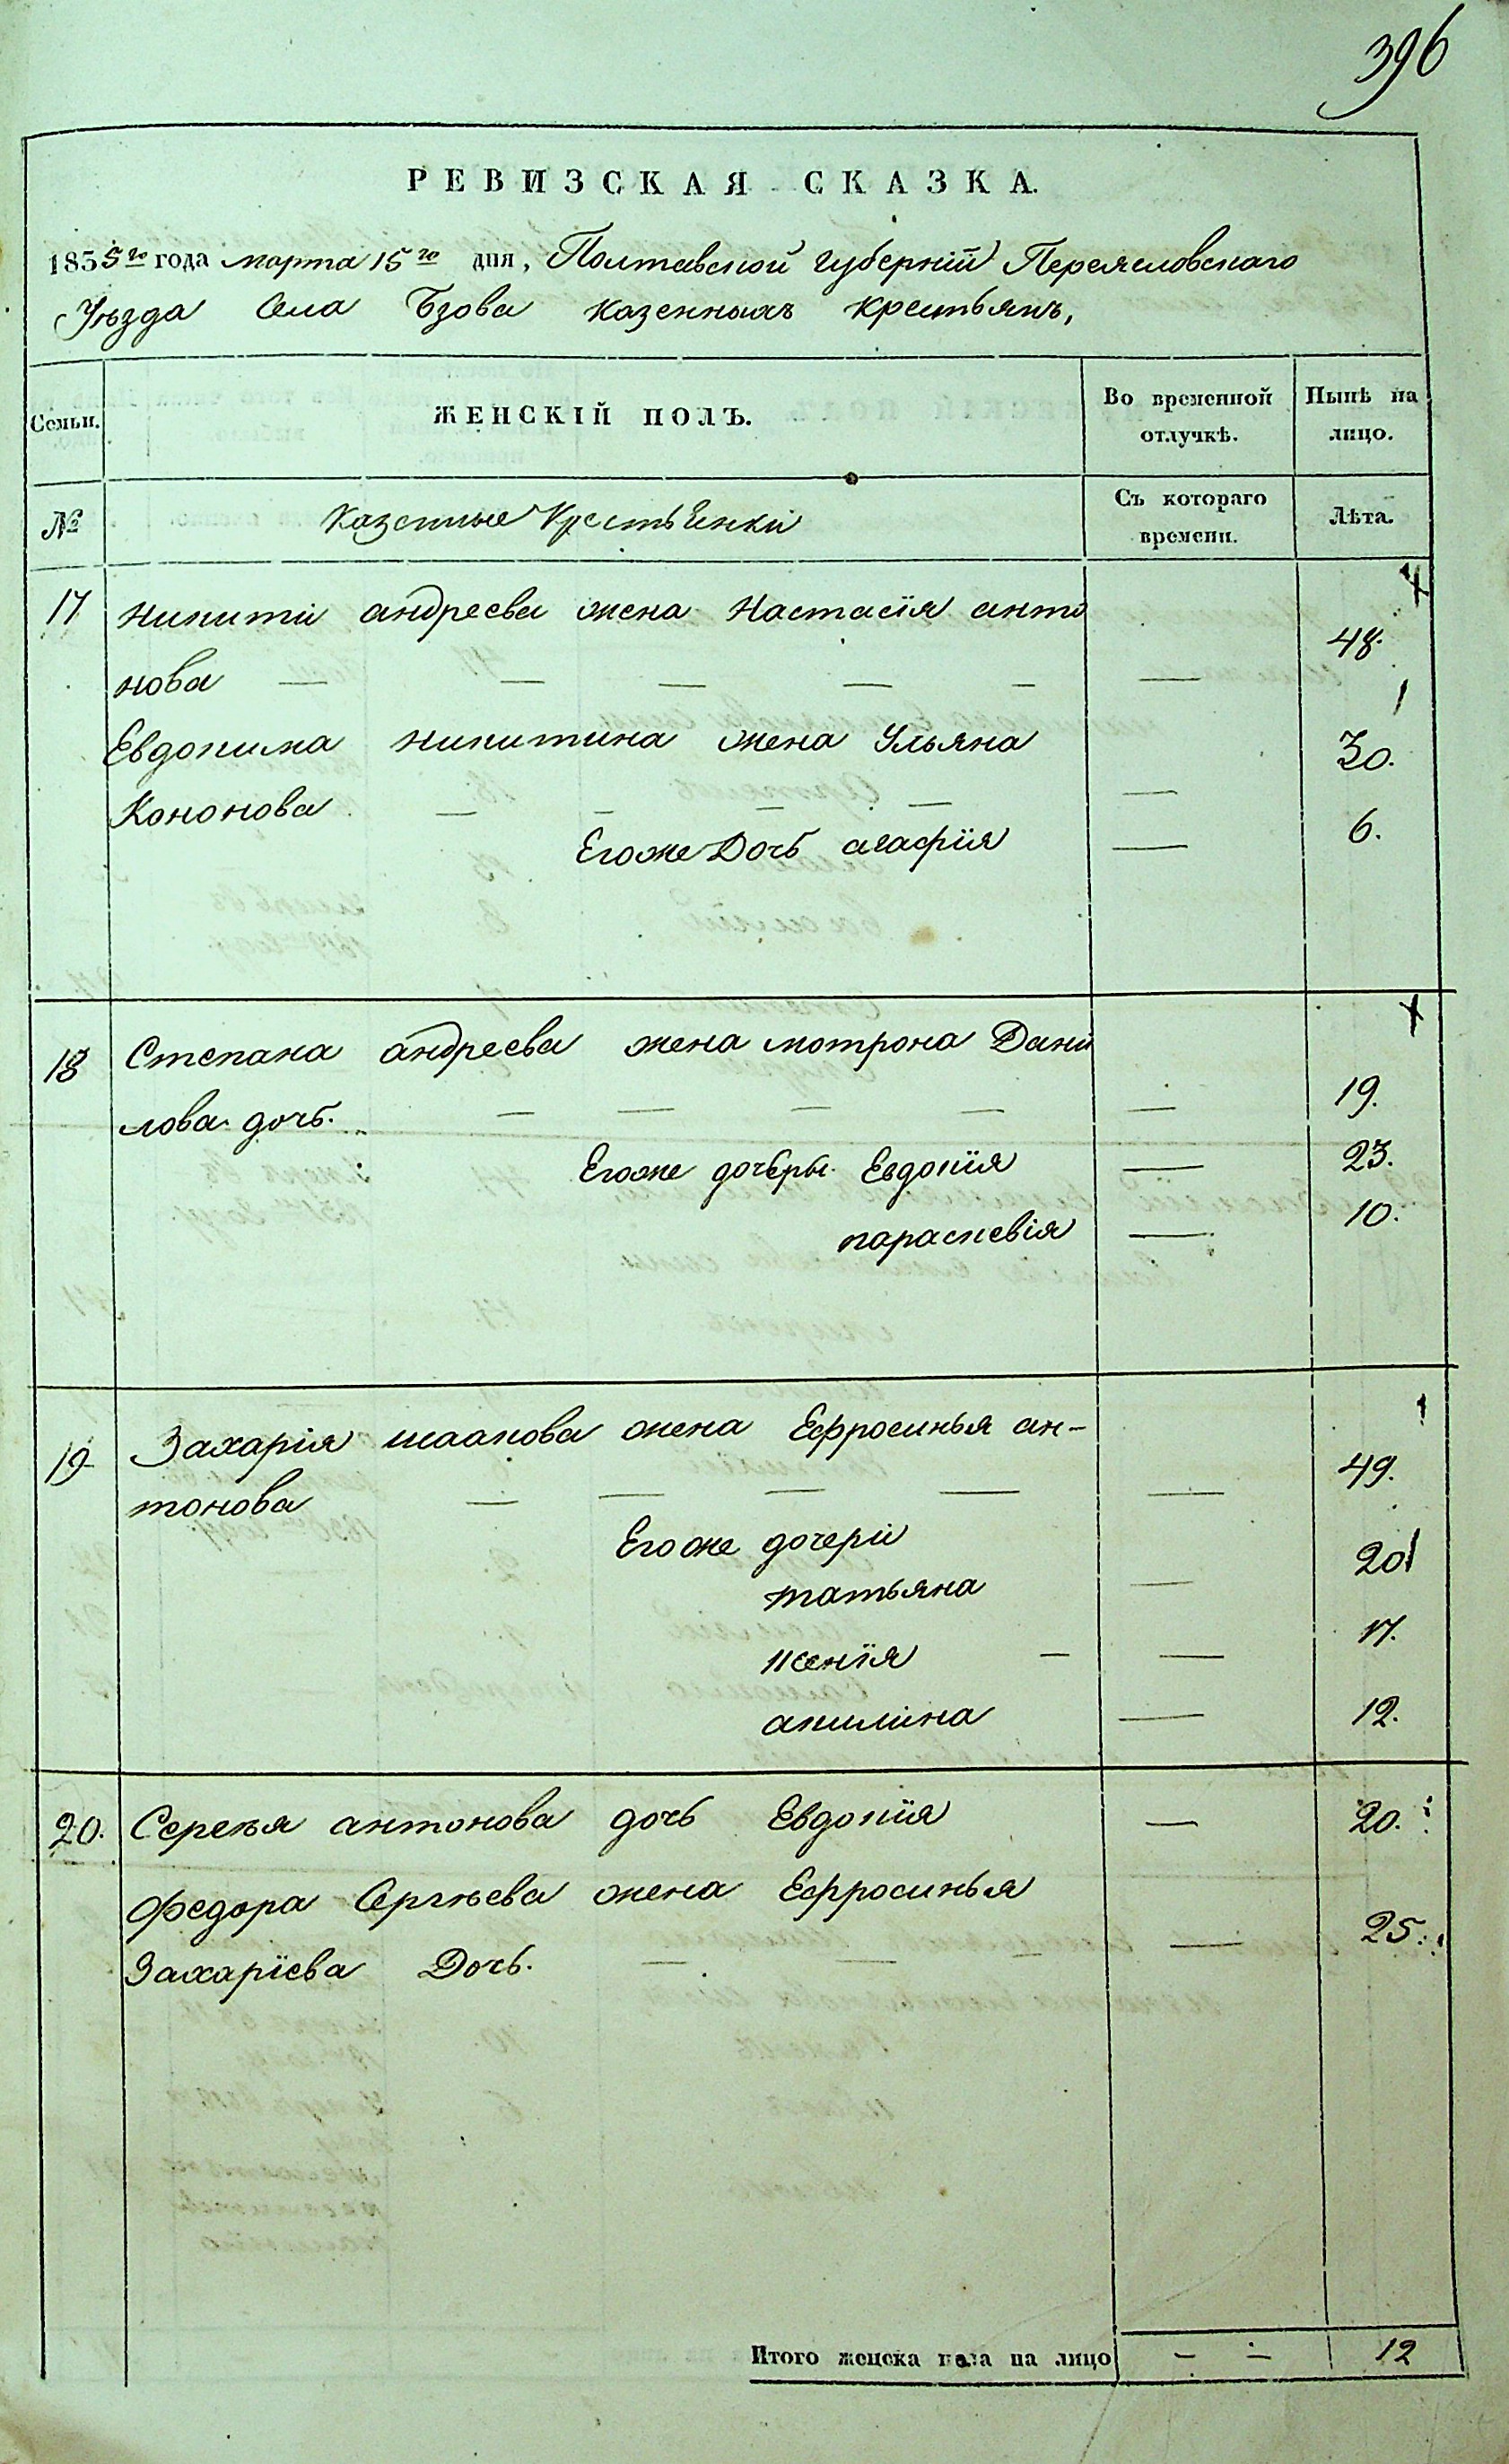 396
РЕВИЗСКАЯ СКАЗКА.
1855го года марта 15го дня, Полтавской губерній Переясловскаго
Уѣзда Села Бзова казенныхъ крестьянъ,
Семьи.
ЖЕНСКІЙ ПОЛЪ.
Во временной
отлучкѣ.
Нынѣ на
лицо.
№
Казенные Крестьянки
Съ котораго
времени.
Лѣта.
17 Никити андреева жена Настасія анто
48.
нова — — — — — —
Евдокима никитина жена Ульяна
30.
Кононова — — — — —
Егоже Дочь агафія — 6.
18 Степана андреева жена мотрона Дани
лова дочь. — — — — — 19.
Егоже дочѣры Евдокія — 23.
параскевія — 10.
19 Захарія исаакова жена Ефросинья ан-
49.
тонова — — — — —
Егоже дочери
татьяна — 20
ксенія — — 17.
акилина — 12.
20. Сергея антонова дочь Евдокія — 20.
Федора Сергѣева жена Ефросинья
25.
Захаріева Дочь. — — —
Итого женска пола на лицо — — 12